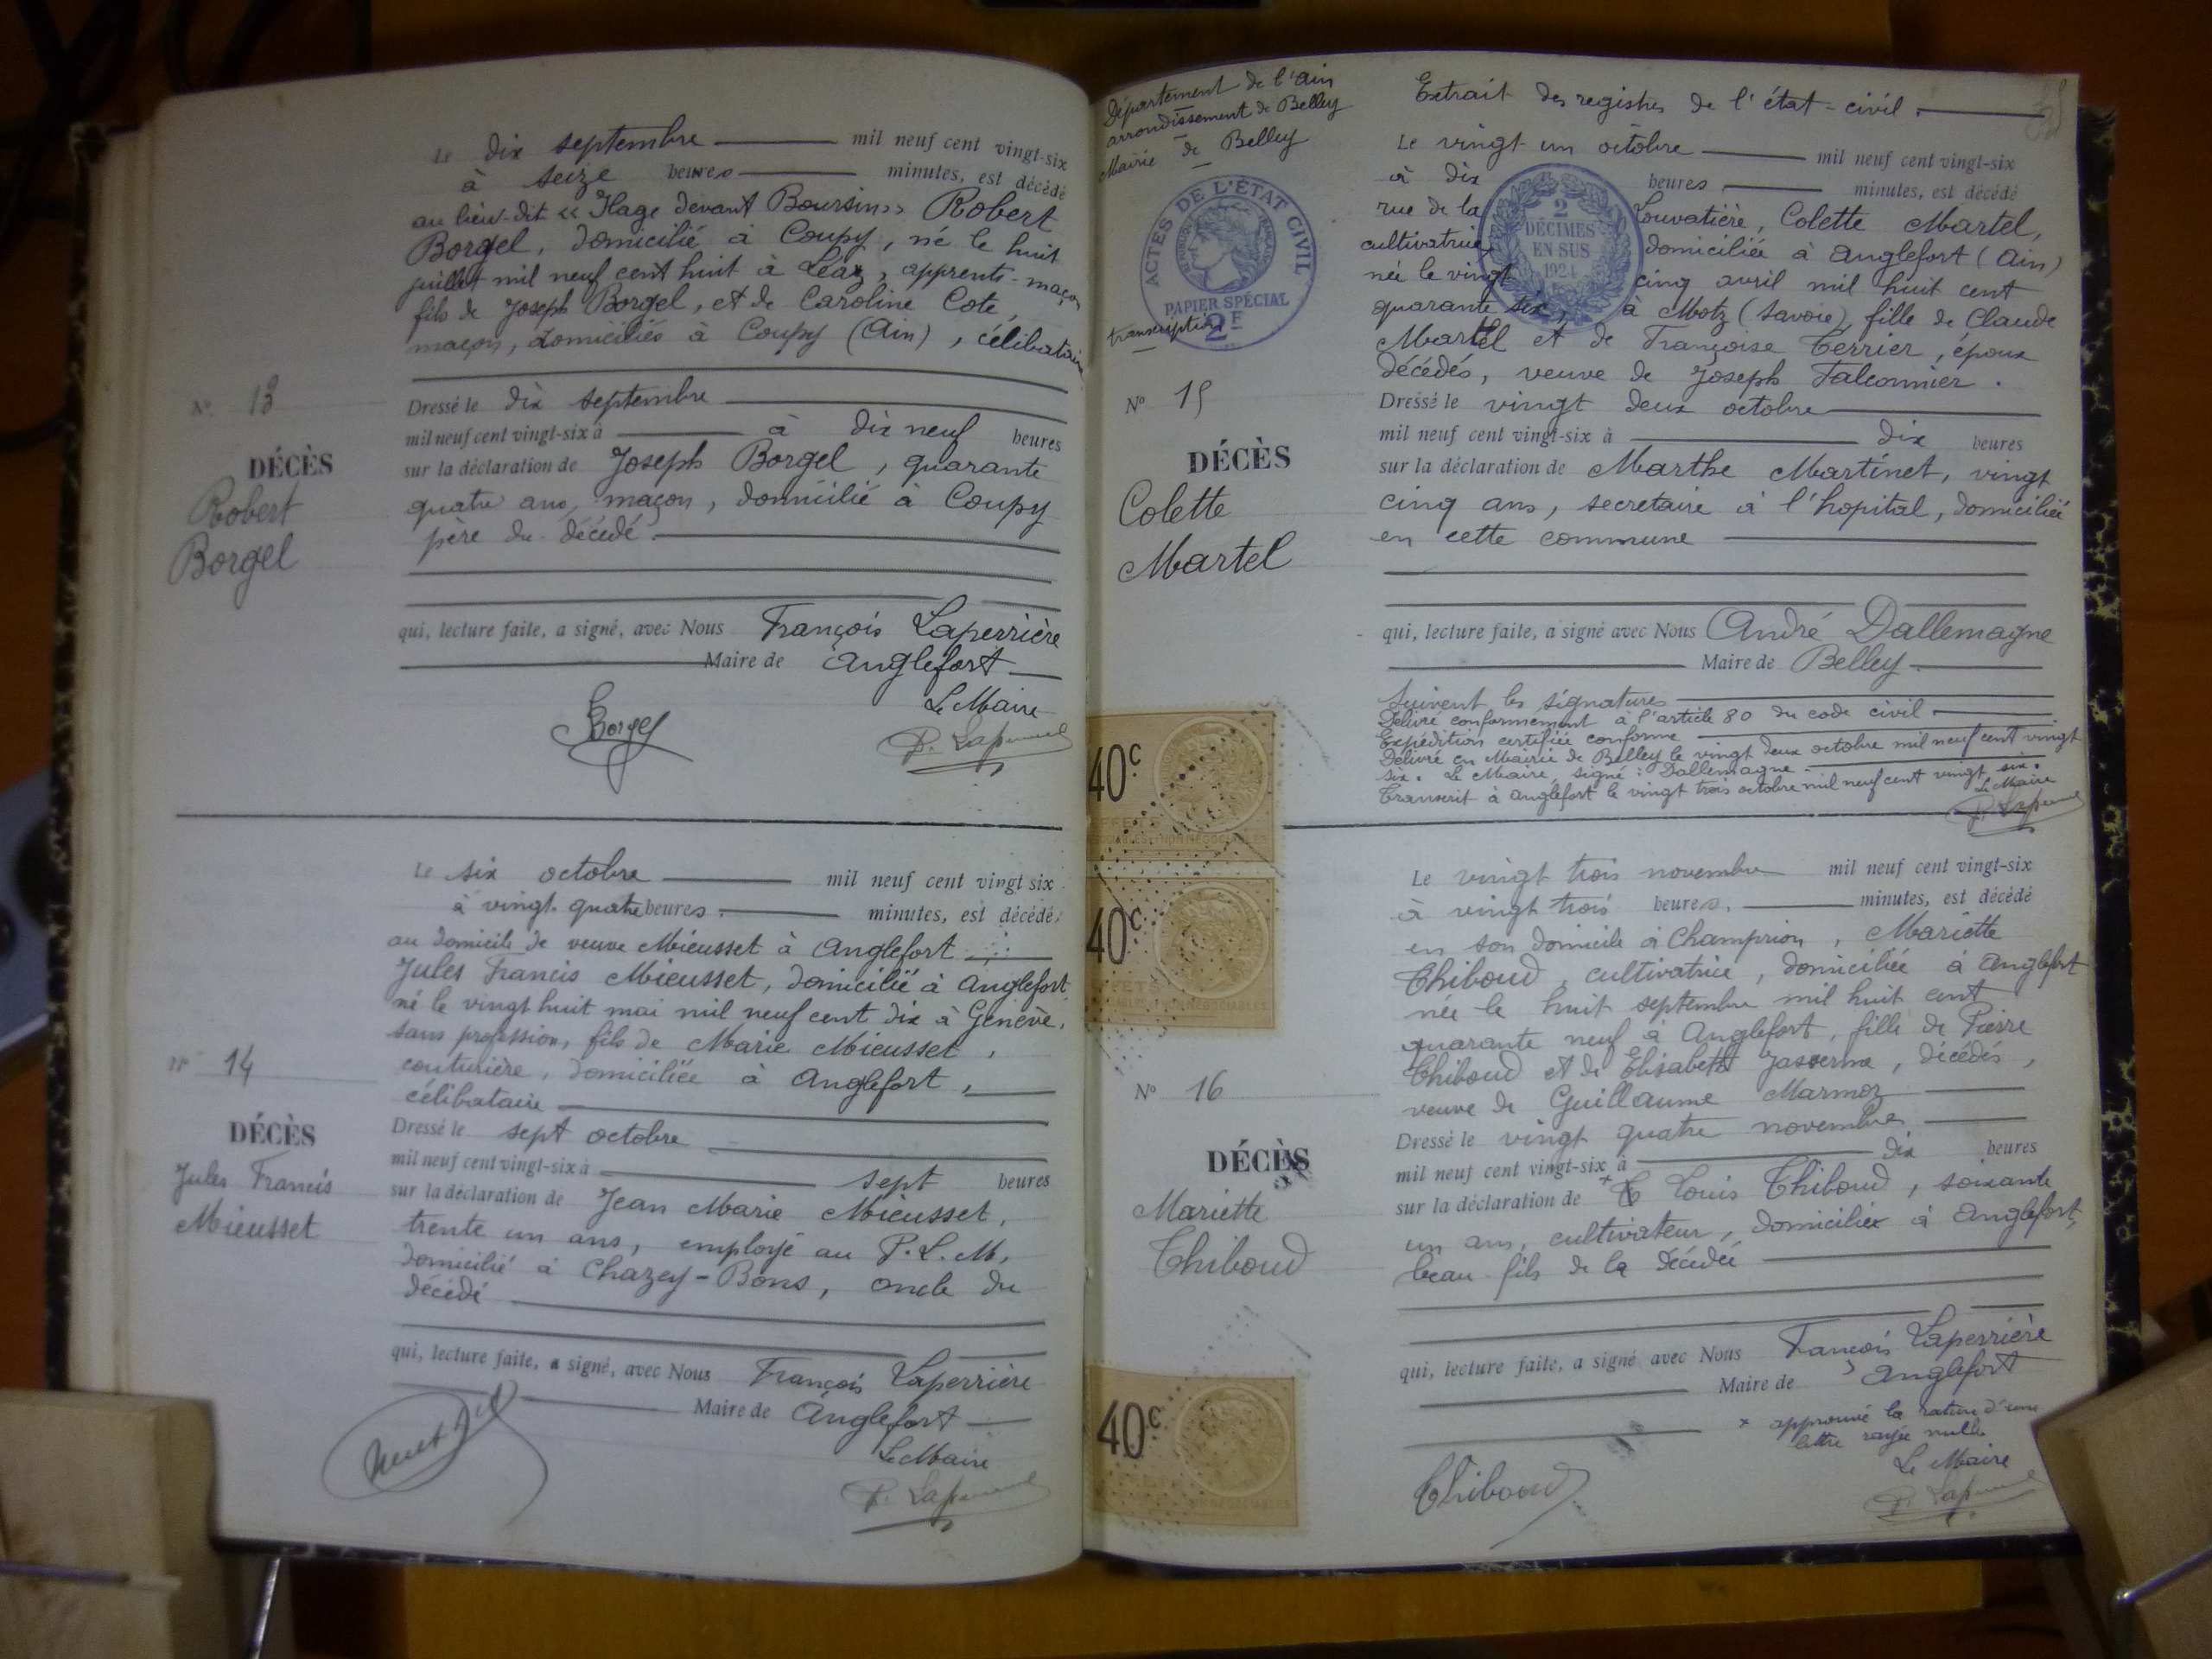 Le dix septembre mil neuf cent vingt-six
à seize heures minutes, est décédé
au lieu-dit « Ilage devant Boursin » Robert
Borgel, domicilié à Coupy, né le huit
juillet mil neuf cent huit à Léaz, apprenti-maçon
fils de Joseph Borgel, et de Caroline Cote,
maçon, domiciliés à Coupy (Ain), célibataire
N° 13
DÉCÈS
Robert
Borgel
Dressé le dix septembre
mil neuf cent vingt-six à à dix neuf heures
sur la déclaration de Joseph Borgel, quarante
quatre ans, maçon, domicilié à Coupy
père du décédé
qui, lecture faite, a signé, avec Nous François Laperrière
Maire de Anglefort
Le Maire
Borgel
Le six octobre mil neuf cent vingt six
à vingt-quatre heures. minutes, est décédé
au domicile de veuve Mieusset à Anglefort
Jules Francis Mieusset, domicilié à Anglefort
né le vingt huit mai mil neuf cent dix à Genève,
sans profession, fils de Marie Mieusset,
couturière, domiciliée à Anglefort,
célibataire
N° 14
DÉCÈS
Jules Francis
Mieusset
Dressé le sept octobre
mil neuf cent vingt-six à sept heures
sur la déclaration de Jean Marie Mieusset,
trente un ans, employé au P.L.M,
domicilié à Chazey-Bons, oncle du
décédé
qui, lecture faite, a signé, avec Nous François Laperrière
Maire de Anglefort
Le Maire
Département de l'Ain
arrondissement de Belley
Mairie de Belley
ACTES DE L'ÉTAT CIVIL
PAPIER SPÉCIAL
2F
transcription
Extrait des registres de l'état-civil.
Le vingt un octobre mil neuf cent vingt-six
à dix heures, minutes, est décédé
rue de la Louvatière, Colette Martel,
cultivatrice domiciliée à Anglefort (Ain)
née le vingt cinq avril mil huit cent
quarante six, à Motz (Savoie), fille de Claude
Martel et de Françoise Terrier, époux
décédés, veuve de Joseph Falconnier.
2
DÉCIMES
EN SUS
1924
N° 15
DÉCÈS
Colette
Martel
Dressé le vingt deux octobre
mil neuf cent vingt-six à dix heures
sur la déclaration de Marthe Martinet, vingt
cinq ans, secretaire à l'hopital, domiciliée
en cette commune
qui, lecture faite, a signé avec Nous André Dallemagne
Maire de Belley.
Suivent les signatures
Délivré conformément à l'article 80 du code civil.
Expédition certifiée conforme
Délivré en Mairie de Belley le vingt deux octobre mil neuf cent vingt
six. Le Maire, signé : Dallemagne.
Transcrit à Anglefort le vingt trois octobre mil neuf cent vingt six.
Le Maire
40c
40c
40c
Le vingt trois novembre mil neuf cent vingt-six
à vingt trois heures, minutes, est décédé
en son domicile à Champrion, Mariette
Thiboud, cultivatrice, domiciliée à Anglefort
née le huit septembre mil huit cent
quarante neuf à Anglefort, fille de Pierre
Thiboud et de Elisabeth Jasserme, décédés,
veuve de Guillaume Marmoz
N° 16
DÉCÈS
Mariette
Thiboud
Dressé le vingt quatre novembre
mil neuf cent vingt-six à dix heures
sur la déclaration de + T Louis Thiboud, soixante
un ans, cultivateur, domicilié à Anglefort,
beau-fils de la décédée
qui, lecture faite, a signé avec Nous François Laperrière
Maire de Anglefort
× approuvé la rature d'une
lettre rayée nulle
Le Maire
Thiboud